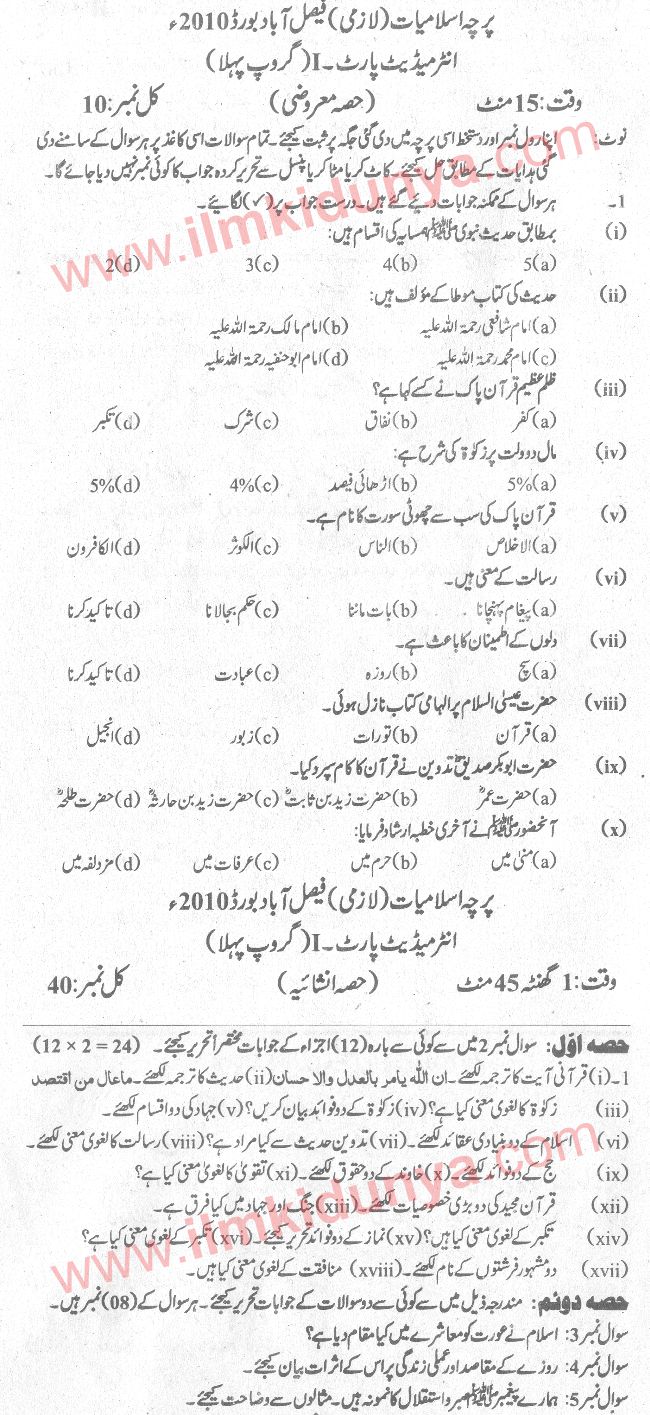 پرچہ اسلامیات (لازمی) فیصل آباد بورڈ 2010ء
انٹرمیڈیٹ پارٹ۔I (گروپ پہلا)
وقت: 15 منٹ (حصہ معروضی) کل نمبر: 10
نوٹ: اپنا رول نمبر اور دستخط اسی پرچہ میں دی گئی جگہ پر ثبت کیجئے۔ تمام سوالات اسی کاغذ پر ہر سوال کے سامنے دی
گئی ہدایات کے مطابق حل کیجئے۔ کاٹ کر یا مٹا کر یا پنسل سے تحریر کردہ جواب کا کوئی نمبر نہیں دیا جائے گا۔
1۔ ہر سوال کے ممکنہ جوابات دیئے گئے ہیں۔ درست جواب پر (✓) لگائیے۔
(i) بمطابق حدیث نبوی ﷺ ہمسایہ کی اقسام ہیں:
(a) 5 (b) 4 (c) 3 (d) 2
www.ilmkidunya.com
(ii) حدیث کی کتاب موطا کے مؤلف ہیں:
(a) امام شافعی رحمۃ اللہ علیہ (b) امام مالک رحمۃ اللہ علیہ
(c) امام محمد رحمۃ اللہ علیہ (d) امام ابو حنفیہ رحمۃ اللہ علیہ
(iii) ظلم عظیم قرآن پاک نے کسے کہا ہے؟
(a) کفر (b) نفاق (c) شرک (d) تکبر
(iv) مال دو ولت پر زکوٰۃ کی شرح ہے:
(a) 5% (b) اڑھائی فیصد (c) 4% (d) 5%
(v) قرآن پاک کی سب سے چھوٹی سورت کا نام ہے۔
(a) الاخلاص (b) الناس (c) الکوثر (d) الکافرون
(vi) رسالت کے معنی ہیں۔
(a) پیغام پہنچانا (b) بات ماننا (c) حکم بجا لانا (d) تاکید کرنا
(vii) دلوں کے اطمینان کا باعث ہے۔
(a) سچ (b) روزہ (c) عبادت (d) تاکید کرنا
(viii) حضرت عیسیٰ السلام پر الہامی کتاب نازل ہوئی۔
(a) قرآن (b) تورات (c) زبور (d) انجیل
(ix) حضرت ابوبکر صدیقؓ تدوین نے قرآن کا کام سپرد کیا۔
(a) حضرت عمرؓ (b) حضرت زید بن ثابتؓ (c) حضرت زید بن حارثہؓ (d) حضرت طلحہؓ
(x) آنحضور ﷺ نے آخری خطبہ ارشاد فرمایا:
(a) منیٰ میں (b) حرم میں (c) عرفات میں (d) مزدلفہ میں
پرچہ اسلامیات (لازمی) فیصل آباد بورڈ 2010ء
انٹرمیڈیٹ پارٹ۔I (گروپ پہلا)
وقت: 1 گھنٹہ 45 منٹ (حصہ انشائیہ) کل نمبر: 40
حصہ اوّل: سوال نمبر 2 میں سے کوئی سے بارہ (12) اجزاء کے جوابات مختصراً تحریر کیجئے۔ (12 × 2 = 24)
1۔(i) قرآنی آیت کا ترجمہ لکھئے۔ ان اللہ یامر بالعدل والاحسان (ii) حدیث کا ترجمہ لکھئے۔ ماعال من اقتصد
(iii) زکوٰۃ کا لغوی معنی کیا ہے؟ (iv) زکوٰۃ کے دو فوائد بیان کریں؟ (v) جہاد کی دو اقسام لکھئے۔
(vi) اسلام کے دو بنیادی عقائد لکھئے۔ (vii) تدوین حدیث سے کیا مراد ہے؟ (viii) رسالت کا لغوی معنی لکھئے۔
(ix) حج کے دو فوائد لکھئے۔ (x) خاوند کے دو حقوق لکھئے۔ (xi) تقویٰ کا لغوی معنی کیا ہے؟
(xii) قرآن مجید کی دو بڑی خصوصیات لکھئے۔ (xiii) جنگ اور جہاد میں کیا فرق ہے۔
(xiv) تکبر کے لغوی معنی کیا ہیں؟ (xv) نماز کے دو فوائد تحریر کیجئے۔ (xvi) تکبر کے لغوی معنی کیا ہے؟
(xvii) دو مشہور فرشتوں کے نام لکھئے۔ (xviii) منافقت کے لغوی معنی کیا ہیں۔
www.ilmkidunya.com
حصہ دوئم: مندرجہ ذیل میں سے کوئی سے دو سوالات کے جوابات تحریر کیجئے۔ ہر سوال کے (08) نمبر ہیں۔
سوال نمبر 3: اسلام نے عورت کو معاشرے میں کیا مقام دیا ہے؟
سوال نمبر 4: روزے کے مقاصد اور عملی زندگی پر اس کے اثرات بیان کیجئے۔
سوال نمبر 5: ہمارے پیغمبر ﷺ صبر و استقلال کا نمونہ ہیں۔ مثالوں سے وضاحت کیجئے۔